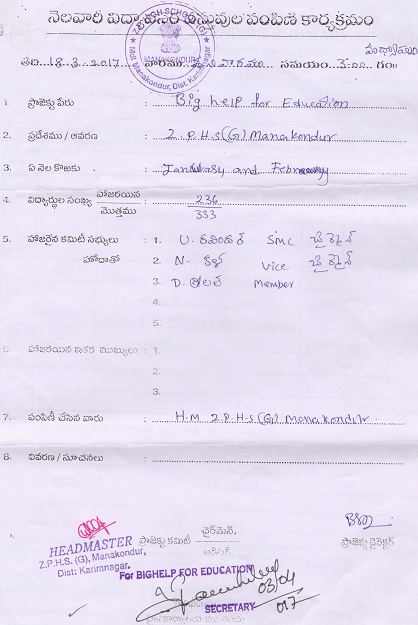 నెలవారీ విద్యా ఉపకార వేతనముల పంపిణీ కార్యక్రమం
Z.P.HIGH SCHOOL (G)
MANAKONDUR
Mdl. Manakondur, Dist. Karimnagar.
తేది 18.3.2017 వారము శనివారము సమయం 3-00 గం
1. ప్రాజెక్టు పేరు : Big help for Education
2. ప్రదేశము / ఆవరణ : Z.P.H.S(G) Manakondur
3. ఏ నెల కొఱకు : January and February
4. విద్యార్థుల సంఖ్య హాజరయిన : 236
మొత్తము 333
5. హాజరైన కమిటీ సభ్యులు : 1. U. రవిందర్ SMC చైర్మైన్
హోదాతో 2. N. Vice చైర్మైన్
3. D. Member
4.
5.
6. హాజరయిన ఇతర ముఖ్యులు : 1.
2.
3.
7. పంపిణీ చేసిన వారు : H.M Z.P.H.S(G) Manakondur.
8. వివరణ / సూచనలు :
HEADMASTER
Z.P.H.S. (G), Manakondur,
Dist: Karimnagar.
ప్రాజెక్టు కమిటీ చైర్‌మెన్,
ప్రాజెక్టు డైరెక్టర్
For BIGHELP FOR EDUCATION
03/04
017
SECRETARY